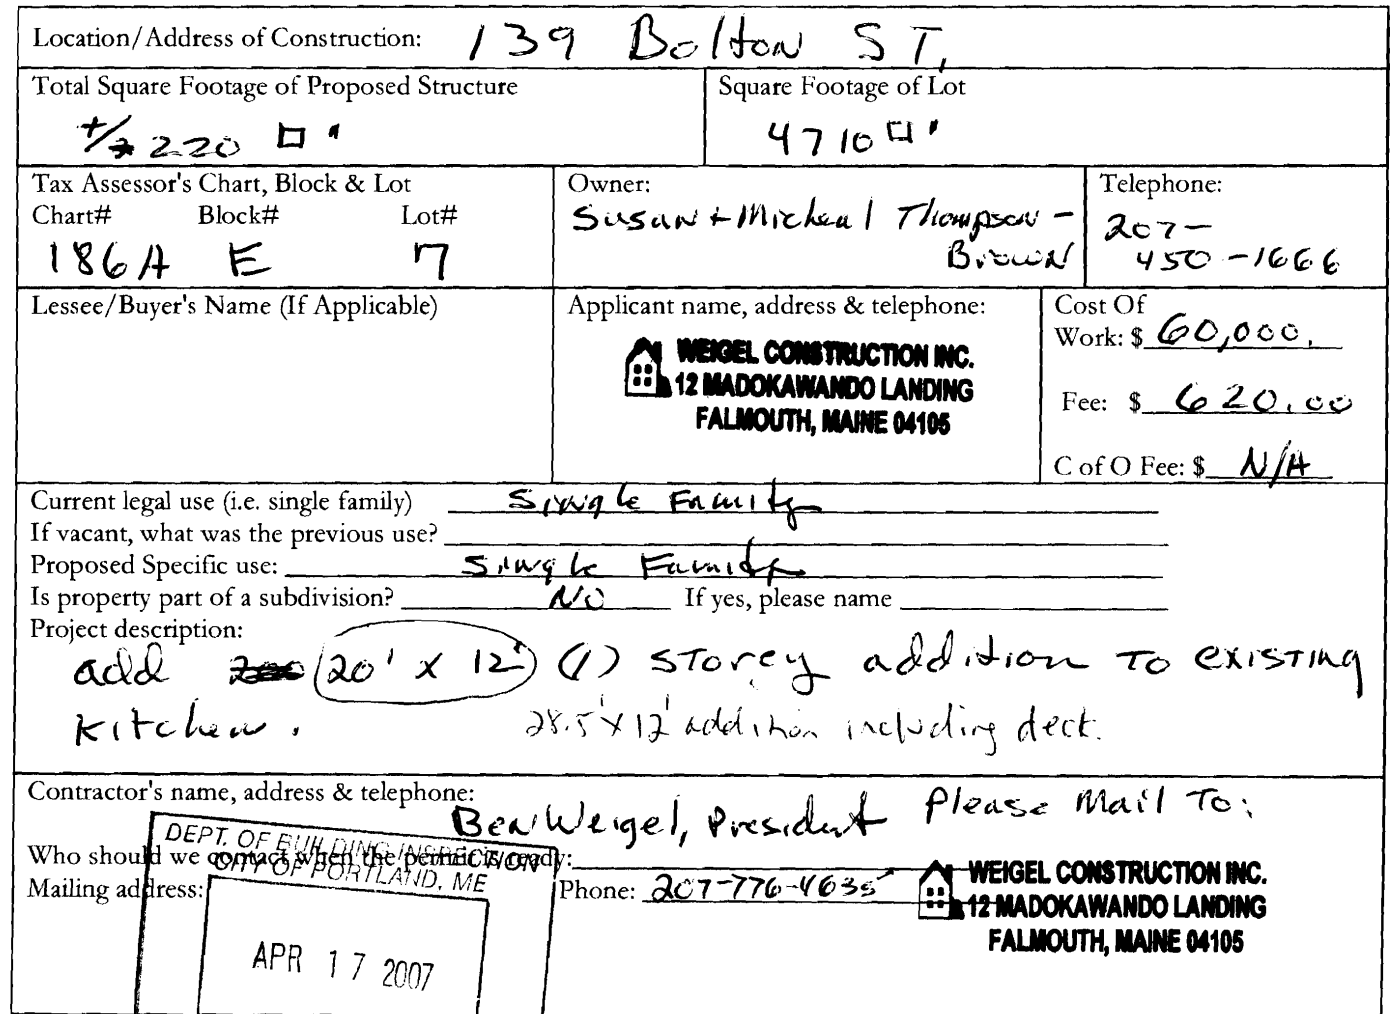 Location/Address of Construction: 139 Bolton ST,
Total Square Footage of Proposed Structure
+/- 220 □ '
Square Footage of Lot
4710 □ '
Tax Assessor's Chart, Block & Lot
Chart# Block# Lot#
186A E 7
Owner:
Susan + Micheal Thompson-
Brown
Telephone:
207-
450-1666
Lessee/Buyer's Name (If Applicable)
Applicant name, address & telephone:
WEIGEL CONSTRUCTION INC.
12 MADOKAWANDO LANDING
FALMOUTH, MAINE 04105
Cost Of
Work: $ 60,000.
Fee: $ 620.00
C of O Fee: $ N/A
Current legal use (i.e. single family) Single Family
If vacant, what was the previous use?
Proposed Specific use: Single Family
Is property part of a subdivision? NO If yes, please name
Project description:
add 20' x 12' (1) STOREY addition TO EXISTING
Kitchen.
28.5' x 12' addition including deck.
Contractor's name, address & telephone:
Ben Weigel, President Please Mail To:
Who should we contact when the permit is ready:
Mailing address:
Phone: 207-776-4635
WEIGEL CONSTRUCTION INC.
12 MADOKAWANDO LANDING
FALMOUTH, MAINE 04105
DEPT. OF BUILDING INSPECTION
CITY OF PORTLAND, ME
APR 17 2007